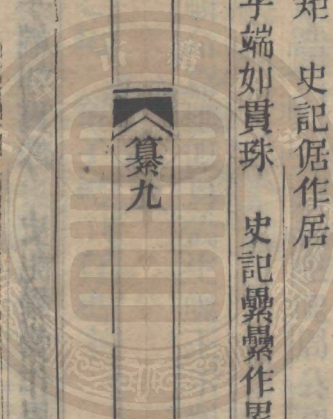 矩　史記倨作居
乎端如貫珠　史記纍纍作累
纂九